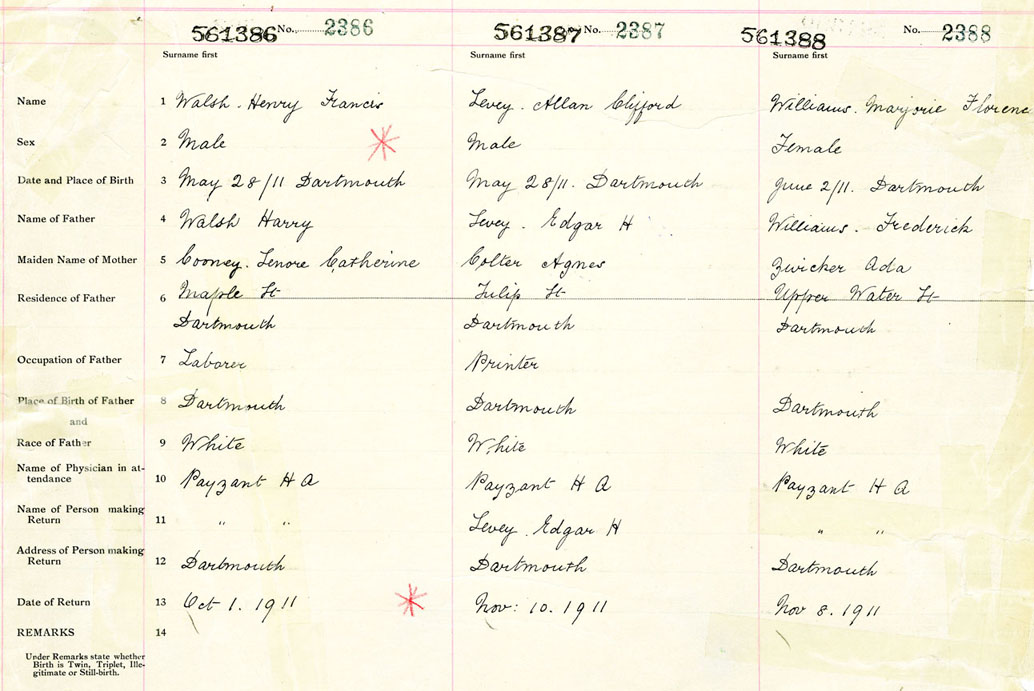 561386 No. 2386 561387 No. 2387 561388 No. 2388
Surname first Surname first Surname first
Name 1 Walsh. Henry Francis Levey. Allan Clifford Williams. Marjorie Florenc
Sex 2 Male Male Female
Date and Place of Birth 3 May 28/11 Dartmouth May 28/11. Dartmouth June 2/11. Dartmouth
Name of Father 4 Walsh Harry Levey. Edgar H Williams. Frederick
Maiden Name of Mother 5 Cooney. Lenore Catherine Colter Agnes Zwicker Ada
Residence of Father 6 Maple St Tulip St Upper Water St
Dartmouth Dartmouth Dartmouth
Occupation of Father 7 Laborer Printer
Place of Birth of Father 8 Dartmouth Dartmouth Dartmouth
and
Race of Father 9 White White White
Name of Physician in at-
tendance 10 Payzant H A Payzant H A Payzant H A
Name of Person making
Return 11 " " Levey. Edgar H " "
Address of Person making
Return 12 Dartmouth Dartmouth Dartmouth
Date of Return 13 Oct 1. 1911 Nov: 10. 1911 Nov 8. 1911
REMARKS 14
Under Remarks state whether
Birth is Twin, Triplet, Ille-
gitimate or Still-birth.